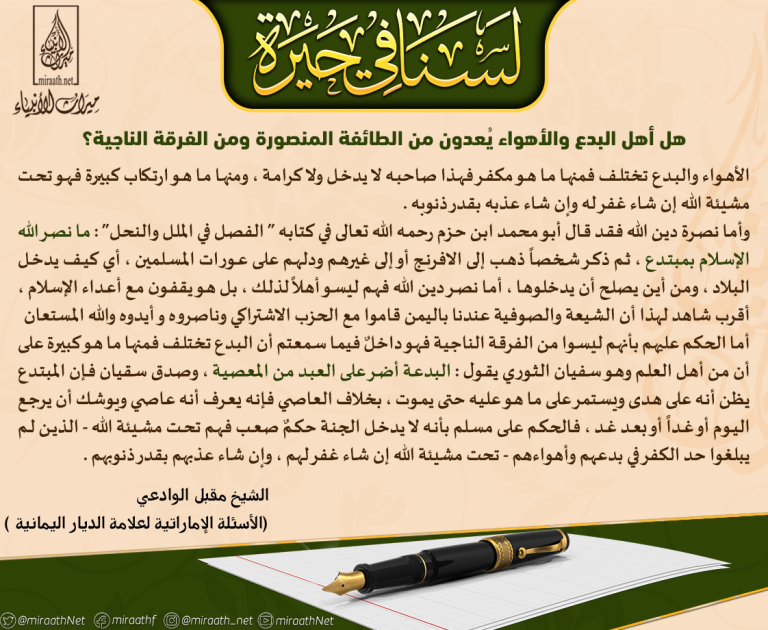 لسنا في حيرة
miraath.net
ميراث الأنبياء
هل أهل البدع والأهواء يُعدون من الطائفة المنصورة ومن الفرقة الناجية؟
الأهواء والبدع تختلف فمنها ما هو مكفر فهذا صاحبه لا يدخل ولا كرامة ، ومنها ما هو ارتكاب كبيرة فهو تحت
مشيئة الله إن شاء غفر له وإن شاء عذبه بقدر ذنوبه .
وأما نصرة دين الله فقد قال أبو محمد ابن حزم رحمه الله تعالى في كتابه " الفصل في الملل والنحل" : ما نصر الله
الإسلام بمبتدع ، ثم ذكر شخصاً ذهب إلى الافرنج أو إلى غيرهم ودلهم على عورات المسلمين ، أي كيف يدخل
البلاد ، ومن أين يصلح أن يدخلوها ، أما نصر دين الله فهم ليسو أهلاً لذلك ، بل هو يقفون مع أعداء الإسلام ،
أقرب شاهد لهذا أن الشيعة والصوفية عندنا باليمن قاموا مع الحزب الاشتراكي وناصروه و أيدوه والله المستعان
أما الحكم عليهم بأنهم ليسوا من الفرقة الناجية فهو داخلٌ فيما سمعتم أن البدع تختلف فمنها ما هو كبيرة على
أن من أهل العلم وهو سفيان الثوري يقول : البدعة أضر على العبد من المعصية ، وصدق سقيان فإن المبتدع
يظن أنه على هدى ويستمر على ما هو عليه حتى يموت ، بخلاف العاصي فإنه يعرف أنه عاصي ويوشك أن يرجع
اليوم أو غداً أو بعد غد ، فالحكم على مسلم بأنه لا يدخل الجنة حكمٌ صعب فهم تحت مشيئة الله - الذين لم
يبلغوا حد الكفر في بدعهم وأهواءهم - تحت مشيئة الله إن شاء غفر لهم ، وإن شاء عذبهم بقدر ذنوبهم .
الشيخ مقبل الوادعي
(الأسئلة الإماراتية لعلامة الديار اليمانية )
@miraathNet miraathf @miraath_net miraathNet